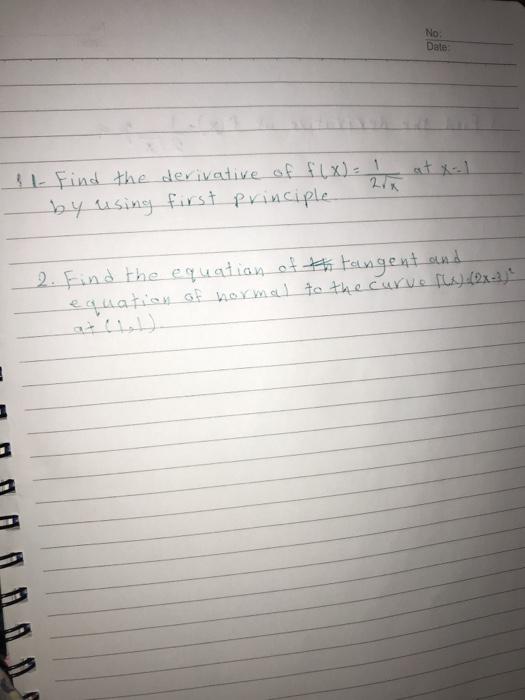 No:
Date:
1- Find the derivative of f(x) = 1/2√x at x=1
by using first principle.
2. Find the equation of tangent and
equation of normal to the curve f(x)=(2x-3)²
at (1,1).